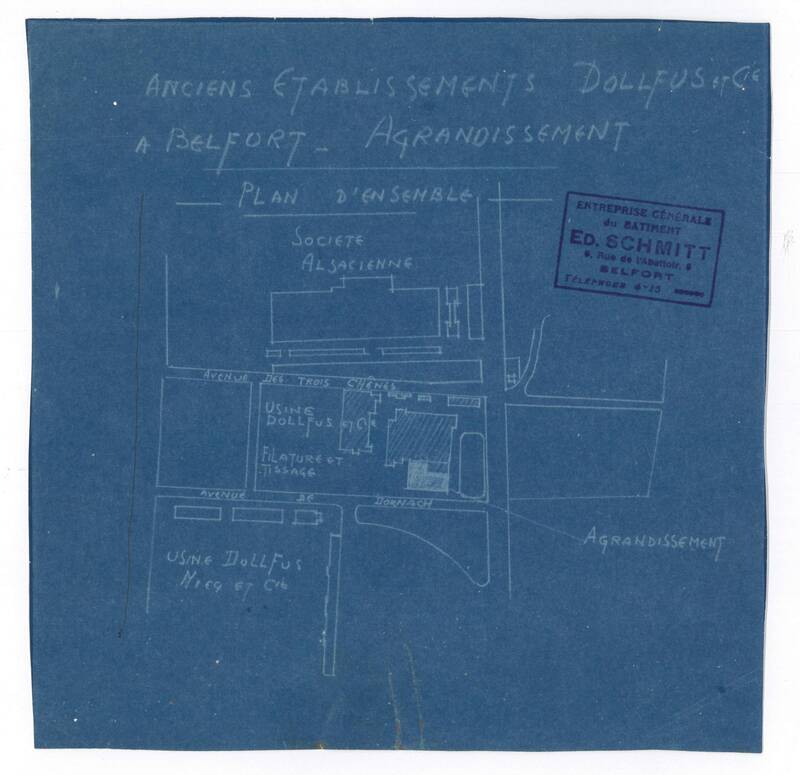 ANCIENS ETABLISSEMENTS DOLLFUS ET CIE
A BELFORT _ AGRANDISSEMENT
PLAN D'ENSEMBLE
ENTREPRISE GÉNÉRALE
du BATIMENT
ED. SCHMITT
9, Rue de l'Abattoir, 9
BELFORT
TÉLÉPHONE 4-15
SOCIETE
ALSACIENNE
AVENUE DES TROIS CHÊNES
USINE
DOLLFUS ET CIE
FILATURE ET
TISSAGE
AVENUE DE DORNACH
AGRANDISSEMENT
USINE DOLLFUS
MIEG ET CIE